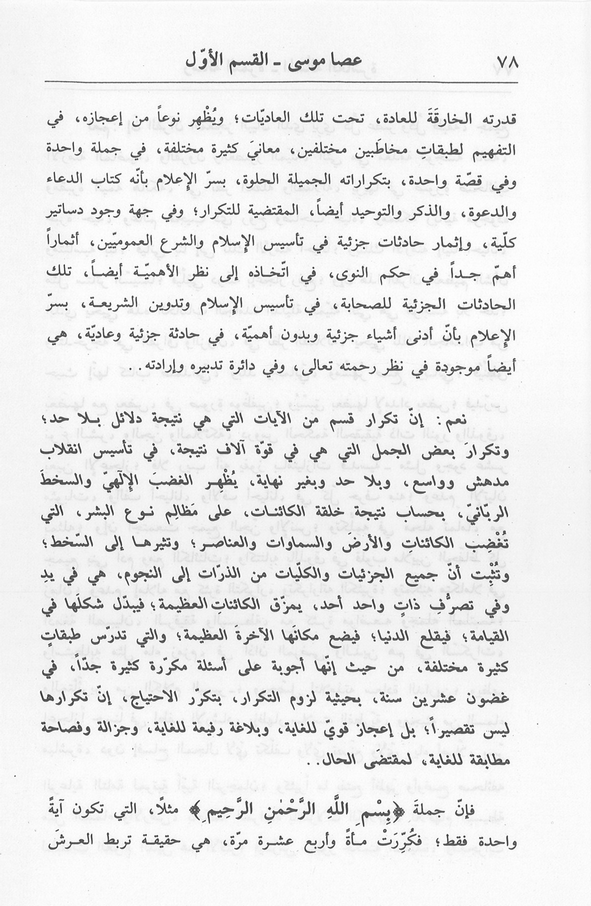 ٧٨ عصا موسى - القسم الأوّل
قدرته الخارقَةَ للعادة، تحت تلك العاديّات؛ ويُظْهِر نوعاً من إعجازه، في
التفهيم لطبقاتِ مخاطَبين مختلفين، معانيَ كثيرة مختلفة، في جملة واحدة
وفي قصّة واحدة، بتكراراته الجميلة الحلوة، بسرّ الإعلام بأنّه كتاب الدعاء
والدعوة، والذكر والتوحيد أيضاً، المقتضية للتكرار؛ وفي جهة وجود دساتير
كلّية، وإثمار حادثات جزئية في تأسيس الإسلام والشرع العموميّين، أثماراً
أهمّ جداً في حكم النوى، في اتّخاذه إلى نظر الأهميّة أيضاً، تلك
الحادثات الجزئية للصحابة، في تأسيس الإسلام وتدوين الشريعة، بسرّ
الإعلام بأنّ أدنى أشياء جزئية وبدون أهميّة، في حادثة جزئية وعاديّة، هي
أيضاً موجودة في نظر رحمته تعالى، وفي دائرة تدبيره وإرادته..
نعم: إنّ تكرار قسم من الآيات التي هي نتيجة دلائل بلا حد؛
وتكرارَ بعض الجمل التي هي في قوّة آلاف نتيجة، في تأسيس انقلاب
مدهش وواسع، وبلا حد وبغير نهاية، يُظْهِر الغضبَ الإِلٰهيّ والسخطَ
الربّانيّ، بحساب نتيجة خلقة الكائنات، على مَظالِم نوع البشر، التي
تُغْضِب الكائناتِ والأرضَ والسماوات والعناصر؛ وتثيرها إلى السّخط؛
وتُثْبِت أنّ جميع الجزئيات والكلّيات من الذرّات إلى النجوم، هي في يدِ
وفي تصرُّفِ ذاتٍ واحد أحد، يمزّق الكائناتِ العظيمة؛ فيبدّل شكلَها في
القيامة؛ فيقلع الدنيا؛ فيضع مكانَها الآخرةَ العظيمة؛ والتي تدرّس طبقاتٍ
كثيرة مختلفة، من حيث إنّها أجوبة على أسئلة مكرّرة كثيرة جدّاً، في
غضون عشرين سنة، بحيثية لزوم التكرار، بتكرّر الاحتياج، إنّ تكرارها
ليس تقصيراً؛ بل إعجاز قويّ للغاية، وبلاغة رفيعة للغاية، وجزالة وفصاحة
مطابقة للغاية، لمقتضَى الحال..
فإنّ جملةَ ﴿بِسْمِ اللَّهِ الرَّحْمٰنِ الرَّحِيمِ﴾ مثلاً، التي تكون آيةً
واحدة فقط؛ فكُرِّرَتْ مأةً وأربع عشرة مرّة، هي حقيقة تربط العرشَ